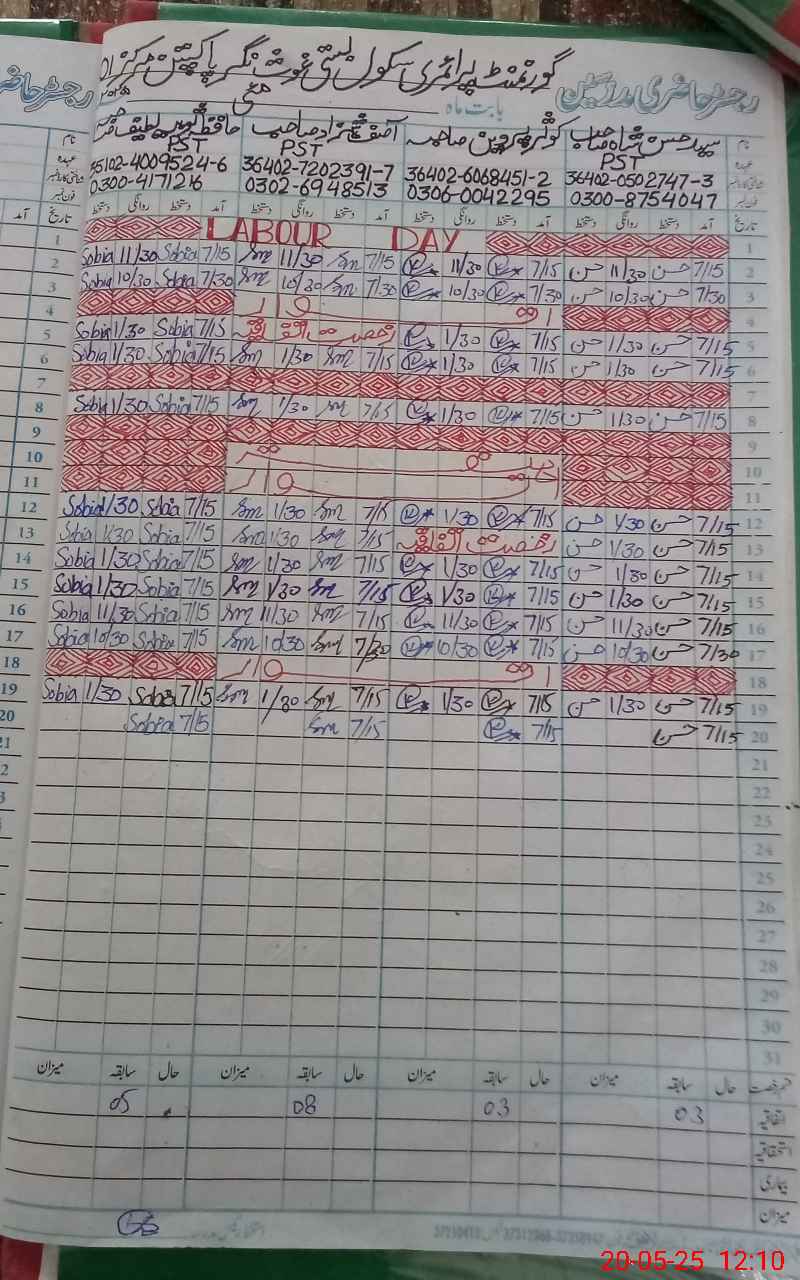 گورنمنٹ پرائمری سکول بستی غوث نگر پاکپتن مرکز
رجسٹر حاضری مدرسین بابت ماہ مئی
نام سید حسن شاہ صاحب کوثر پروین صاحبہ آصف شہزاد صاحب
عہدہ PST PST PST
36402-0502747-3 36402-6068451-2 36402-7202391-7 35102-4009524-6
فون نمبر 0300-8754047 0306-0042295 0302-6948513 0300-4171216
تاریخ آمد دستخط روانگی دستخط آمد دستخط روانگی دستخط آمد دستخط روانگی دستخط آمد دستخط روانگی دستخط
1 LABOUR DAY 1
2 7/15 حسن 11/30 حسن 7/15 11/30 7/15 Sm 11/30 Sm 7/15 Sobia 11/30 Sobia 2
3 7/30 حسن 10/30 حسن 7/30 10/30 7/30 Sm 10/30 Sm 7/30 Sobia 10/30 Sobia 3
4 اتوار 4
5 7/15 حسن 11/30 حسن 7/15 1/30 رخصت اتفاقیہ 7/15 Sobia 1/30 Sobia 5
6 7/15 حسن 1/30 حسن 7/15 1/30 7/15 Sm 1/30 Sm 7/15 Sobia 1/30 Sobia 6
7 7
8 7/15 حسن 1/30 حسن 7/15 1/30 7/15 Sm 1/30 Sm 7/15 Sobia 1/30 Sobia 8
9 9
10 10
11 اتوار 11
12 7/15 حسن 1/30 حسن 7/15 1/30 7/15 Sm 1/30 Sm 7/15 Sobia 1/30 Sobia 12
13 7/15 حسن 1/30 حسن رخصت اتفاقیہ 7/15 Sm 1/30 Sm 7/15 Sobia 1/30 Sobia 13
14 7/15 حسن 1/30 حسن 7/15 1/30 7/15 Sm 1/30 Sm 7/15 Sobia 1/30 Sobia 14
15 7/15 حسن 1/30 حسن 7/15 1/30 7/15 Sm 1/30 Sm 7/15 Sobia 1/30 Sobia 15
16 7/15 حسن 11/30 حسن 7/15 11/30 7/15 Sm 11/30 Sm 7/15 Sobia 11/30 Sobia 16
17 7/30 حسن 10/30 حسن 7/15 10/30 7/30 Sm 10/30 Sm 7/15 Sobia 10/30 Sobia 17
18 اتوار 18
19 7/15 حسن 1/30 حسن 7/15 1/30 7/15 Sm 1/30 Sm 7/15 Sobia 1/30 Sobia 19
20 7/15 حسن 7/15 7/15 Sm 7/15 Sobia 20
21
22
23
24
25
26
27
28
29
30
31
قسم رخصت حال سابقہ میزان حال سابقہ میزان حال سابقہ میزان حال سابقہ میزان
اتفاقیہ 03 03 08 05
استحقاقیہ
بیماری
میزان
20-05-25 12:10